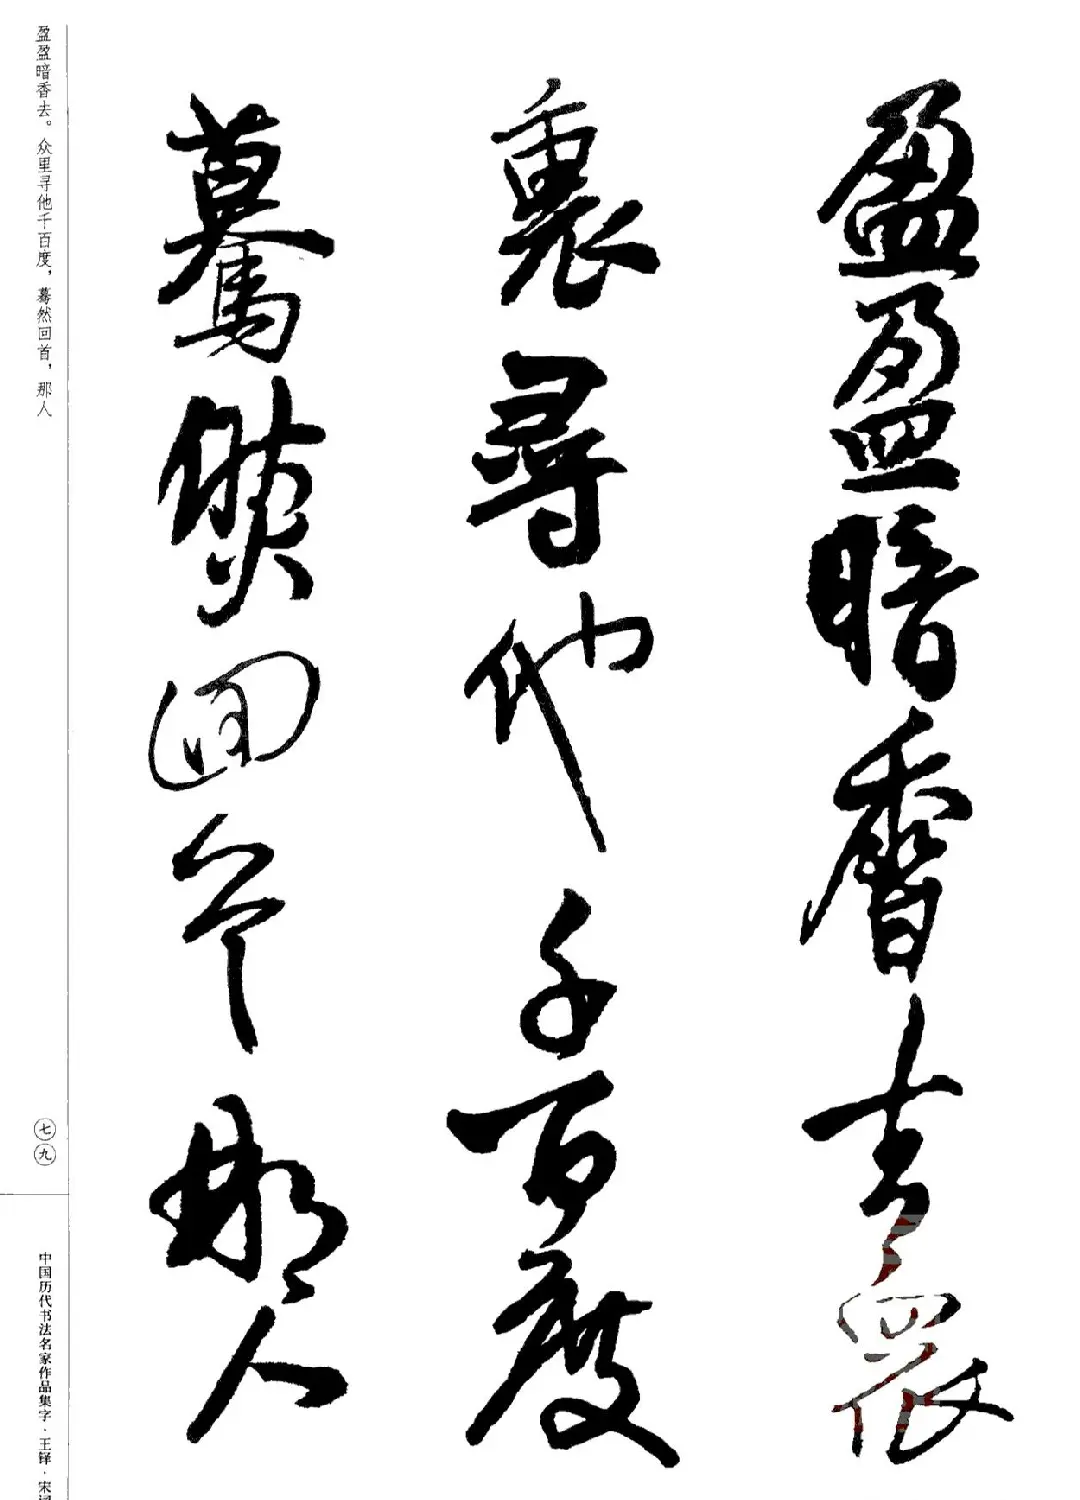 盈盈暗香去衆
裏尋他千百度
驀然回首那人
盈盈暗香去。众里寻他千百度，蓦然回首，那人
七九
中国历代书法名家作品集字·王铎·宋词